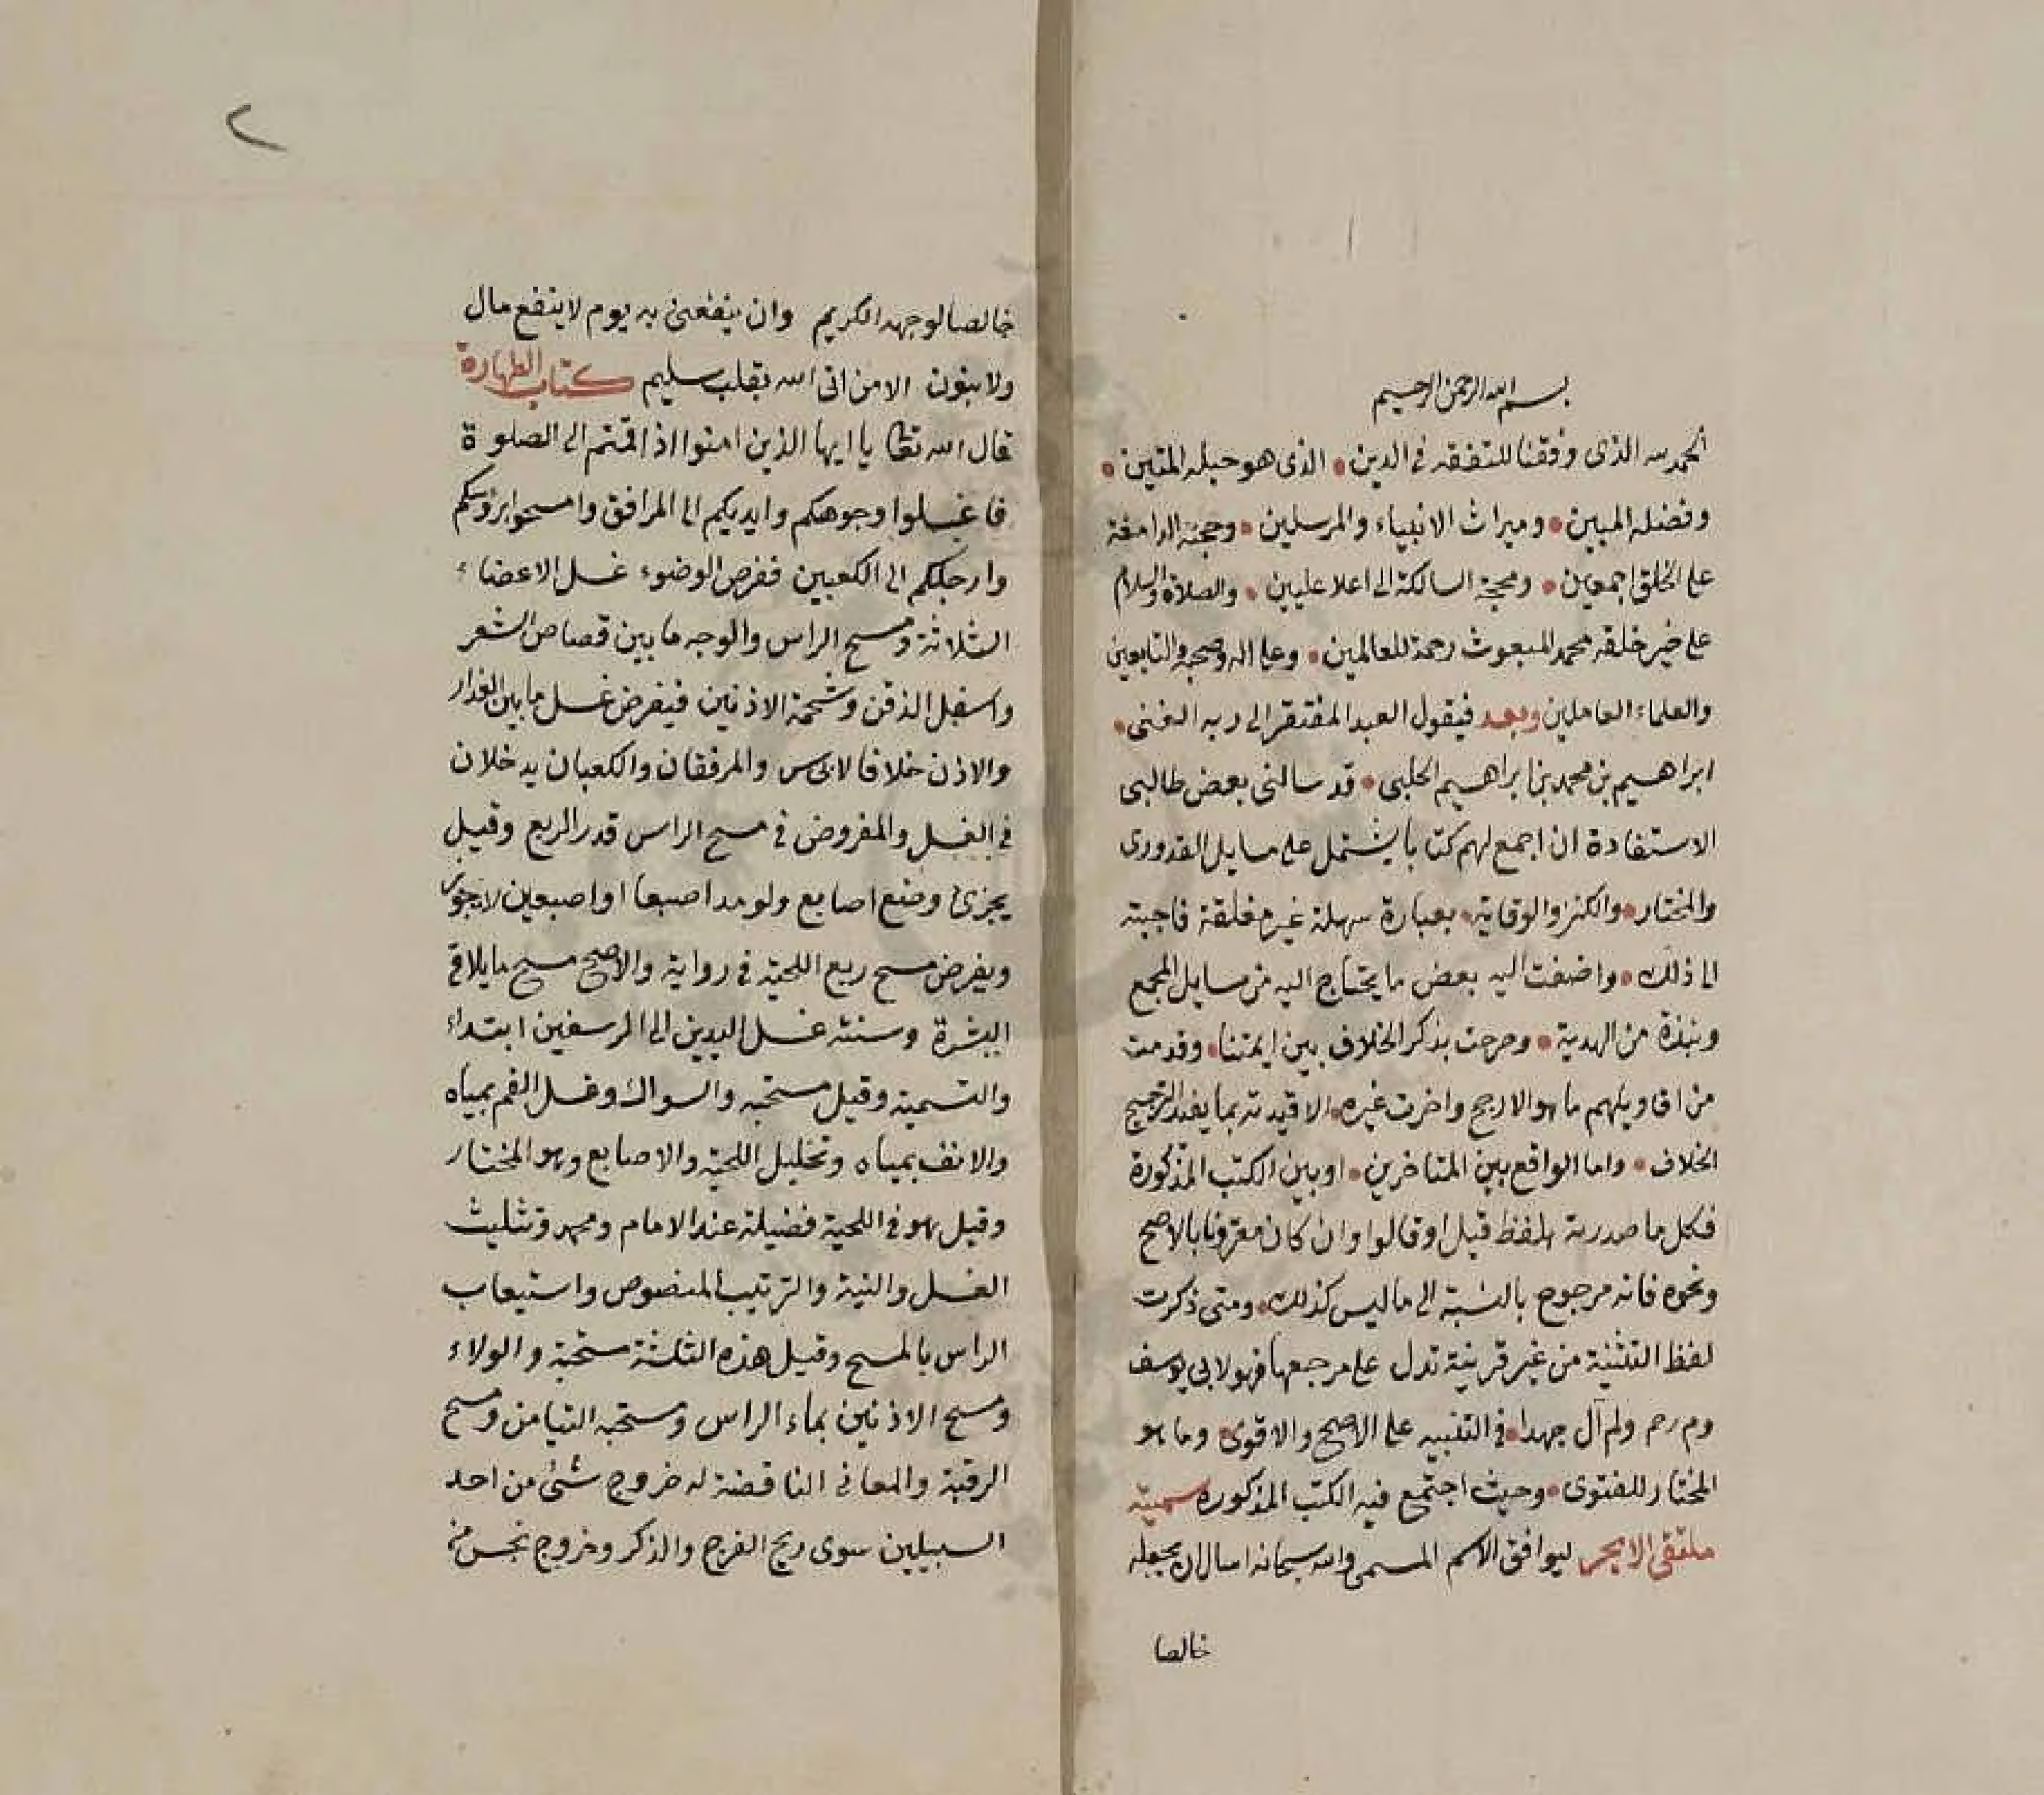 بسم الله الرحمن الرحيم
الحمد لله الذى وفقنا للتفقه فى الدين • الذى هو حبله المتين •
وفضله المبين • وميراث الانبياء والمرسلين • وحجته الدامغة
على الخلق اجمعين • ومحجته السالكة الى اعلا عليين • والصلاة والسلام
على خير خلقه محمد المبعوث رحمة للعالمين • وعلى اله وصحبه والتابعين
والعلماء العاملين وبعد فيقول العبد المفتقر الى ربه الغنى •
ابراهيم بن محمد بن ابراهيم الحلبى • قد سالنى بعض طالبى
الاستفادة ان اجمع لهم كتابا يشتمل على مسايل القدورى
والمختار • والكنز والوقاية • بعبارة سهلة غير مغلقة فاجبته
الى ذلك • واضفت اليه بعض ما يحتاج اليه من مسايل المجمع
ونبذة من الهدية • وصرحت بذكر الخلاف بين ايمتنا • وقدمت
من اقاويلهم ما هو الارجح واخرت غيره • الا قيدته بما يفيد الترجيح
الخلاف • واما الواقع بين المتاخرين • او بين الكتب المذكورة
فكل ما صدرته بلفظ قيل او قالوا وان كان مقرونا بالاصح
ونحوه فانه مرجوح بالنسبة الى ما ليس كذلك • ومتى ذكرت
لفظ التثنية من غير قرينة تدل على مرجعها فهو لابى يوسف
وم رحم ولم آل جهدا • فى التنبيه على الاصح والاقوى • وما هو
المختار للفتوى • وحيث اجتمع فيه الكتب المذكورة سميته
ملتقى الابحر ليوافق الاسم المسمى والله سبحانه اسال ان يجعله
خالصا
٢
خالصا لوجهه الكريم وان ينفعنى به يوم لا ينفع مال
ولا بنون الا من اتى الله بقلب سليم كتاب الطهارة
قال الله تعا يا ايها الذين امنوا اذا قمتم الى الصلوة
فاغسلوا وجوهكم وايديكم الى المرافق وامسحوا برؤسكم
وارجلكم الى الكعبين ففرض الوضوء غسل الاعضاء
الثلاثة ومسح الراس والوجه ما بين قصاص الشعر
واسفل الذقن وشحمة الاذنين فيفرض غسل ما بين العذار
والاذن خلافا لابى س والمرفقان والكعبان يدخلان
فى الغسل والمفروض فى مسح الراس قدر الربع وقيل
يجزئ وضع اصابع ولو مد اصبعا او اصبعين لا يجوز
ويفرض مسح ربع اللحية فى رواية والاصح مسح ما يلاقى
البشرة وسنته غسل اليدين الى الرسغين ابتداء
والتسمية وقيل مستحبه والسواك وغسل الفم بمياه
والانف بمياه وتخليل اللحية والاصابع وهو المختار
وقيل هو فى اللحية فضيلة عند الامام ومحمد وتثليث
الغسل والنية والترتيب المنصوص واستيعاب
الراس بالمسح وقيل هذه الثلثة مستحبة والولاء
ومسح الاذنين بماء الراس ومستحبه التيامن ومسح
الرقبة والمعانى الناقضة له خروج شئ من احد
السبيلين سوى ريح الفرج والذكر وخروج نجس من